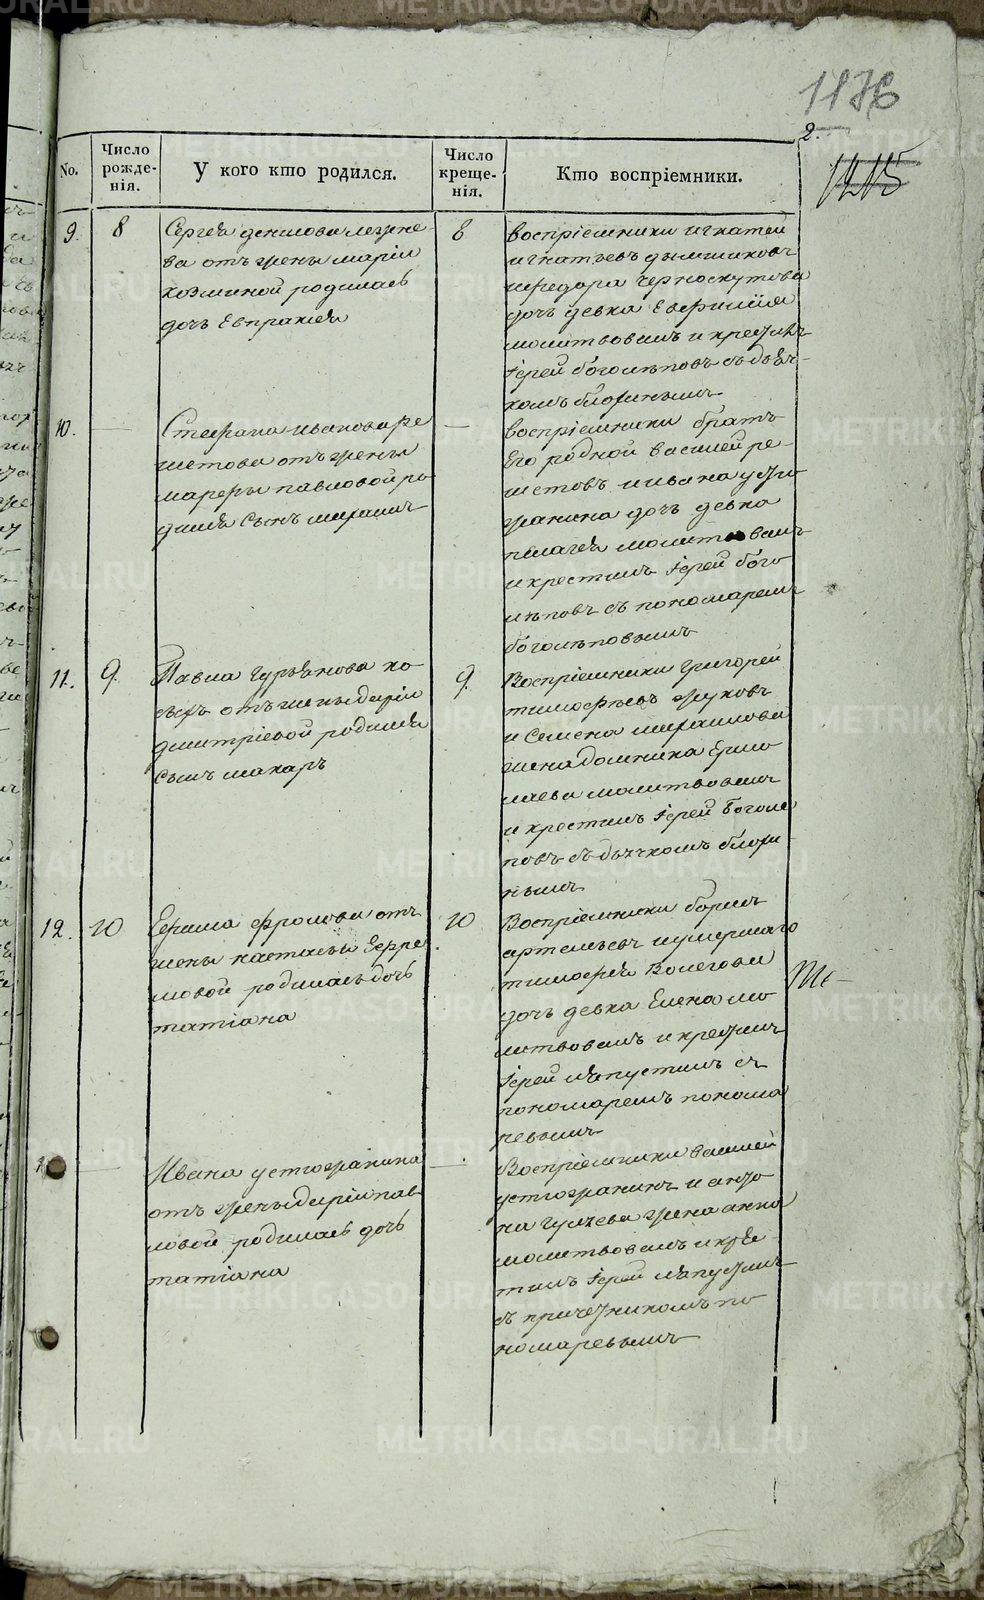 1176
2.
1215
No.
Число рожденія.
У кого кто родился.
Число крещенія.
Кто воспріемники.
9.
8
Сергея данилова
ва отъ жены маріи
козминой родилась
дочь Евпраксея
8
воспріемники игнатей
игнатьевъ дымшиковъ
ифедора черноскутова
дочь девка Евфимия
молитвовалъ и крестилъ
Іерей боголѣповъ съ дьяч-
комъ
10.
Стефана иванова ре
шетова отъ жены
марфы павловой ро
дился сынъ михаилъ
воспріемники братъ
Его родной василей ре-
шетовъ и ивана устю
жанина дочь девка
пелагея молитвовалъ
и крестилъ Іерей бого
лѣповъ съ пономаремъ
боголѣповымъ
11.
9.
Павла Гурьянова ко
сыхъ отъ жены даріи
дмитріевой родился
сынъ макаръ
9.
Воспріемники григорей
тимофѣевъ жуковъ
и Семена михаилова
жена домника Ермо
лаева молитвовалъ
и крестилъ Іерей Боголе
повъ съ дьячкомъ
нымъ
12.
10
Ефима фролова отъ
жены настасьи Ефре
мовой родилась дочь
татіана
10
Воспріемники борисъ
артемьевъ иумершаго
тимофея Волегова
дочь девка Елена мо
литвовалъ и крестилъ
Іерей Лапустинъ съ
пономаремъ понома
ревымъ
Ивана устюжанина
отъ жены даріи пав
ловой родилась дочь
татіана
Воспріемники василей
устюжанинъ и анто
на жена анна
молитвовалъ икрес
тилъ Іерей Лапустинъ
съ причетникомъ по
номаревымъ
METRIKI.GASO-URAL.RU